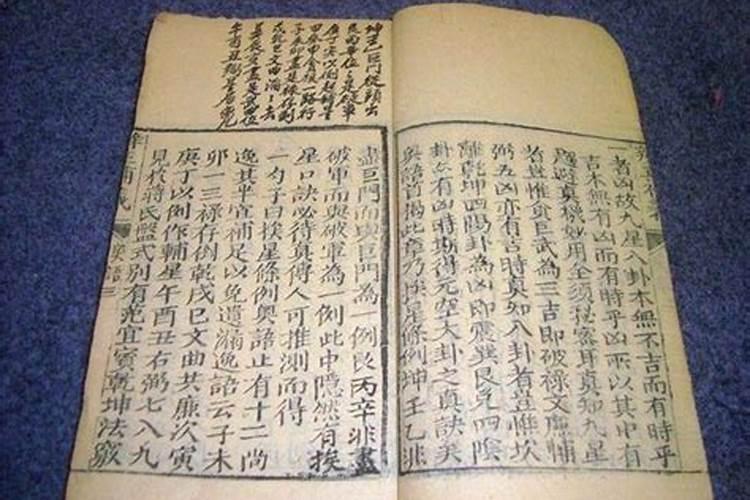 一者凶故九星八卦本無不吉而有時乎
吉本無有凶而有時乎凶所以其中有
趨避真機妙用全須秘密耳真知九星
者豈惟貪巨武為三吉即破祿文廉輔
弼五凶亦有吉時真知八卦者豈惟坎
離乾坤四陽卦為凶即震巽艮兌四陰
卦亦有凶時斯得元空大卦之真訣矣
奧語首揭此章乃挨星條例坤壬乙非
坤壬乙巨門從頭出
艮丙辛位位是破軍
甲癸申貪狼一路行
盡巨門而與巨門為一例艮丙辛非盡
破軍而與破軍為一例此中隱然有挨
星口訣必待真傳人可推測而得
一勺子曰挨星條例奧語止有十二尚
逸其半宜補足以免遺漏逸語云子未
卯一三祿存倒乾戌巳文曲共廉次寅
庚丁以例作輔星午酉丑右弼七八九
見於蔣氏盤式別有范宜賓乾坤法竅